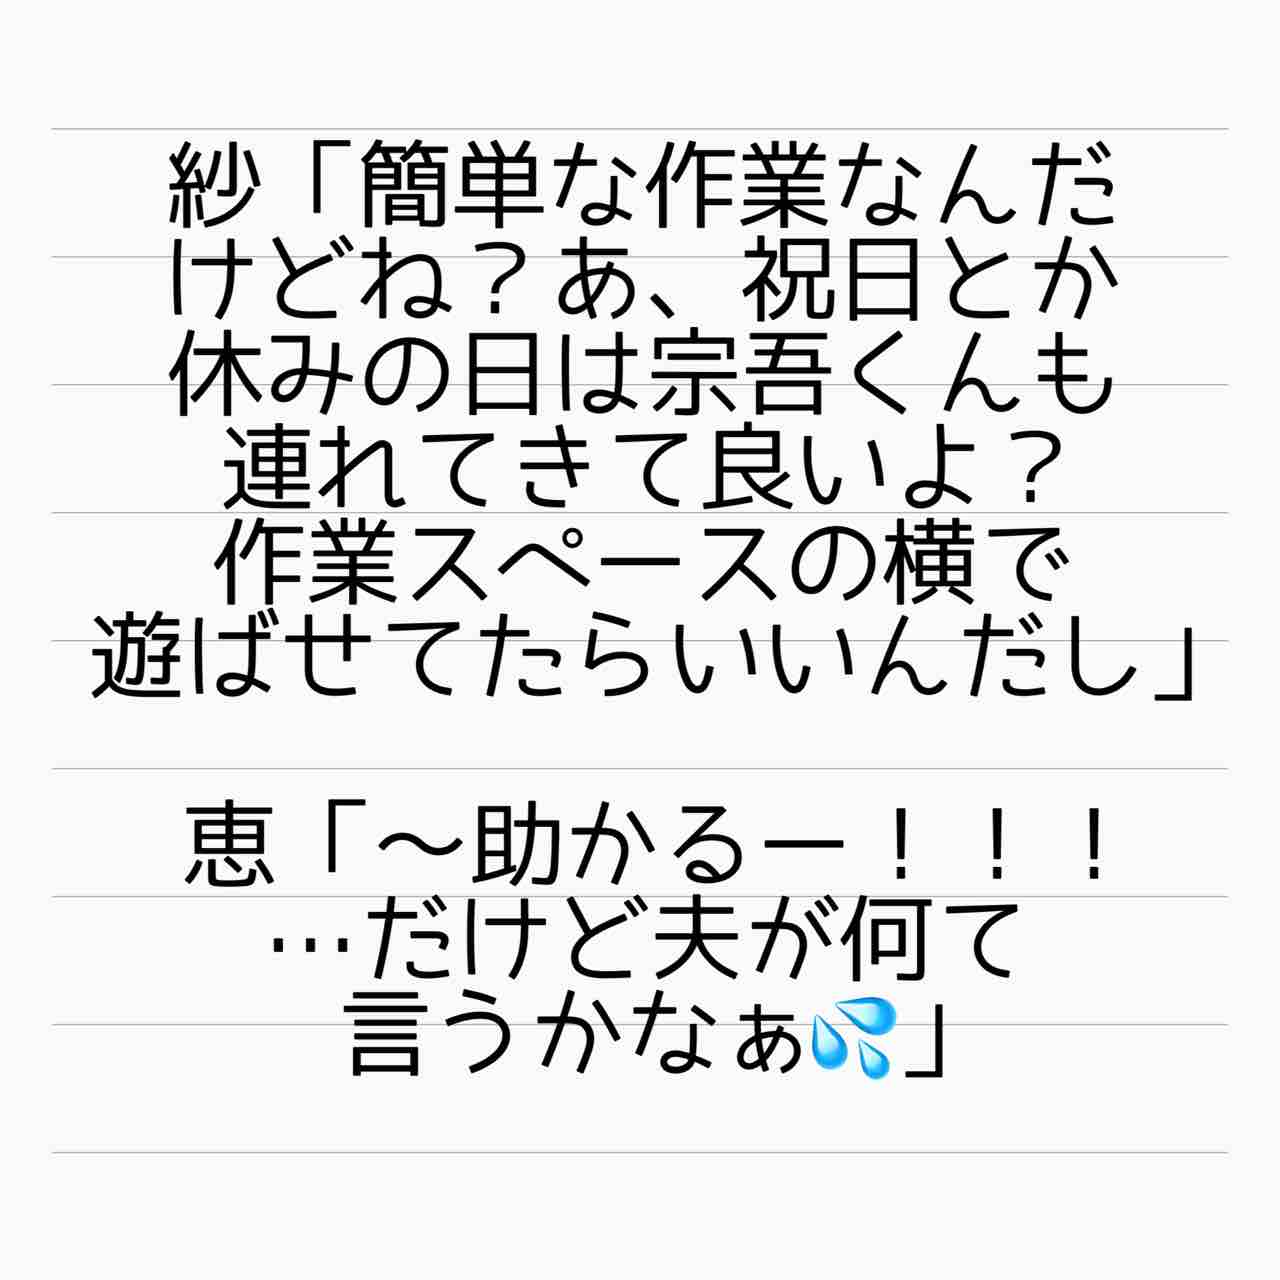 紗「簡単な作業なんだ
けどね？あ、祝日とか
休みの日は宗吾くんも
連れてきて良いよ？
作業スペースの横で
遊ばせてたらいいんだし」
恵「〜助かるー！！！
…だけど夫が何て
言うかなぁ💦」